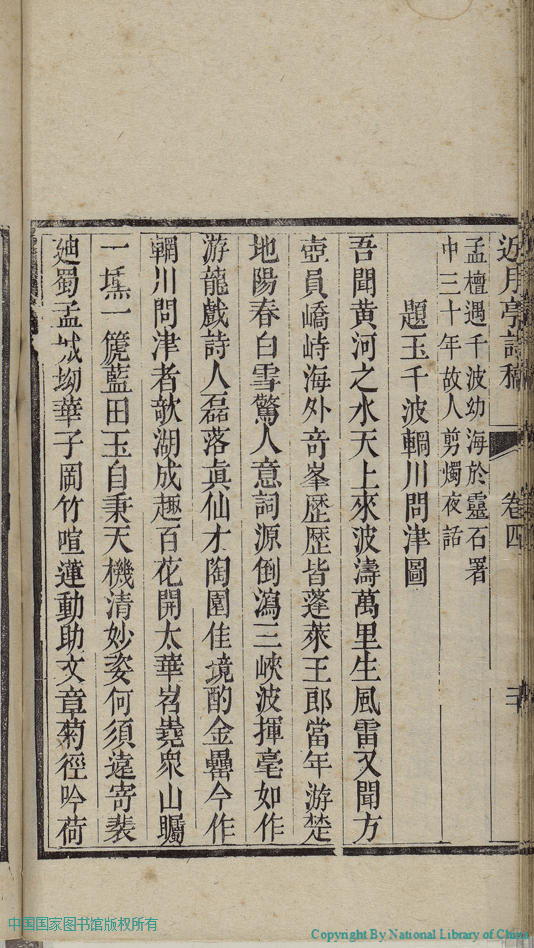 近月亭詩稿 卷四 三
孟檀遇千波幼海於靈石署
中三十年故人剪燭夜話
題玉千波輞川問津圖
吾聞黃河之水天上來波濤萬里生風雷又聞方
壺員嶠峙海外奇峯歷歷皆蓬萊王郎當年游楚
地陽春白雪驚人意詞源倒瀉三峽波揮毫如作
游龍戲詩人磊落眞仙才陶園佳境酌金罍今作
輞川問津者欹湖成趣百花開太華岧嶢衆山矚
一墲一篪藍田玉自秉天機清妙姿何須遠寄裴
迪蜀孟城坳華子岡竹喧蓮動助文章菊徑吟荷
中国国家图书馆版权所有
Copyright By National Library of China